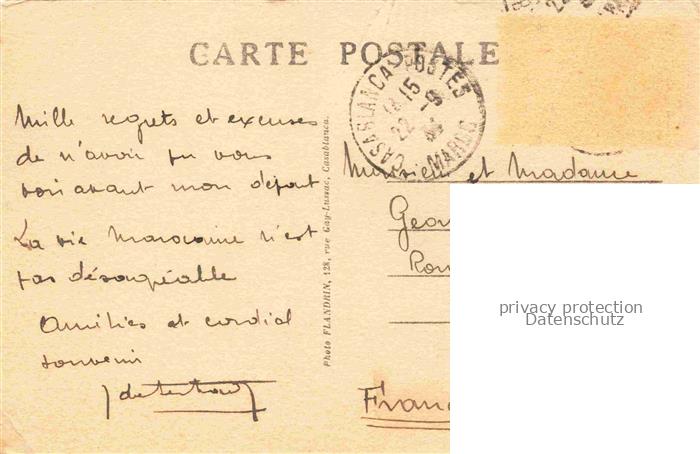 CARTE POSTALE
CASABLANCA POSTES
18 15
22 -9
MAROC
Mille regrets et excuses
de n'avoir pu vous
voir avant mon départ
La vie Marocaine n'est
pas désagréable
Amitiés et cordial
souvenir
Photo FLANDRIN, 128, rue Gay-Lussac, Casablanca.
Monsieur et Madame
Geor
Rou
Franc
privacy protection
Datenschutz